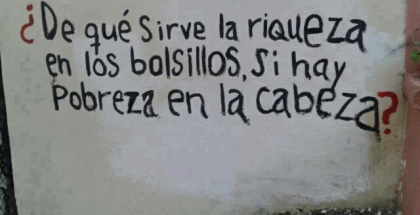 ¿De qué sirve la riqueza
en los bolsillos, si hay
pobreza en la cabeza?